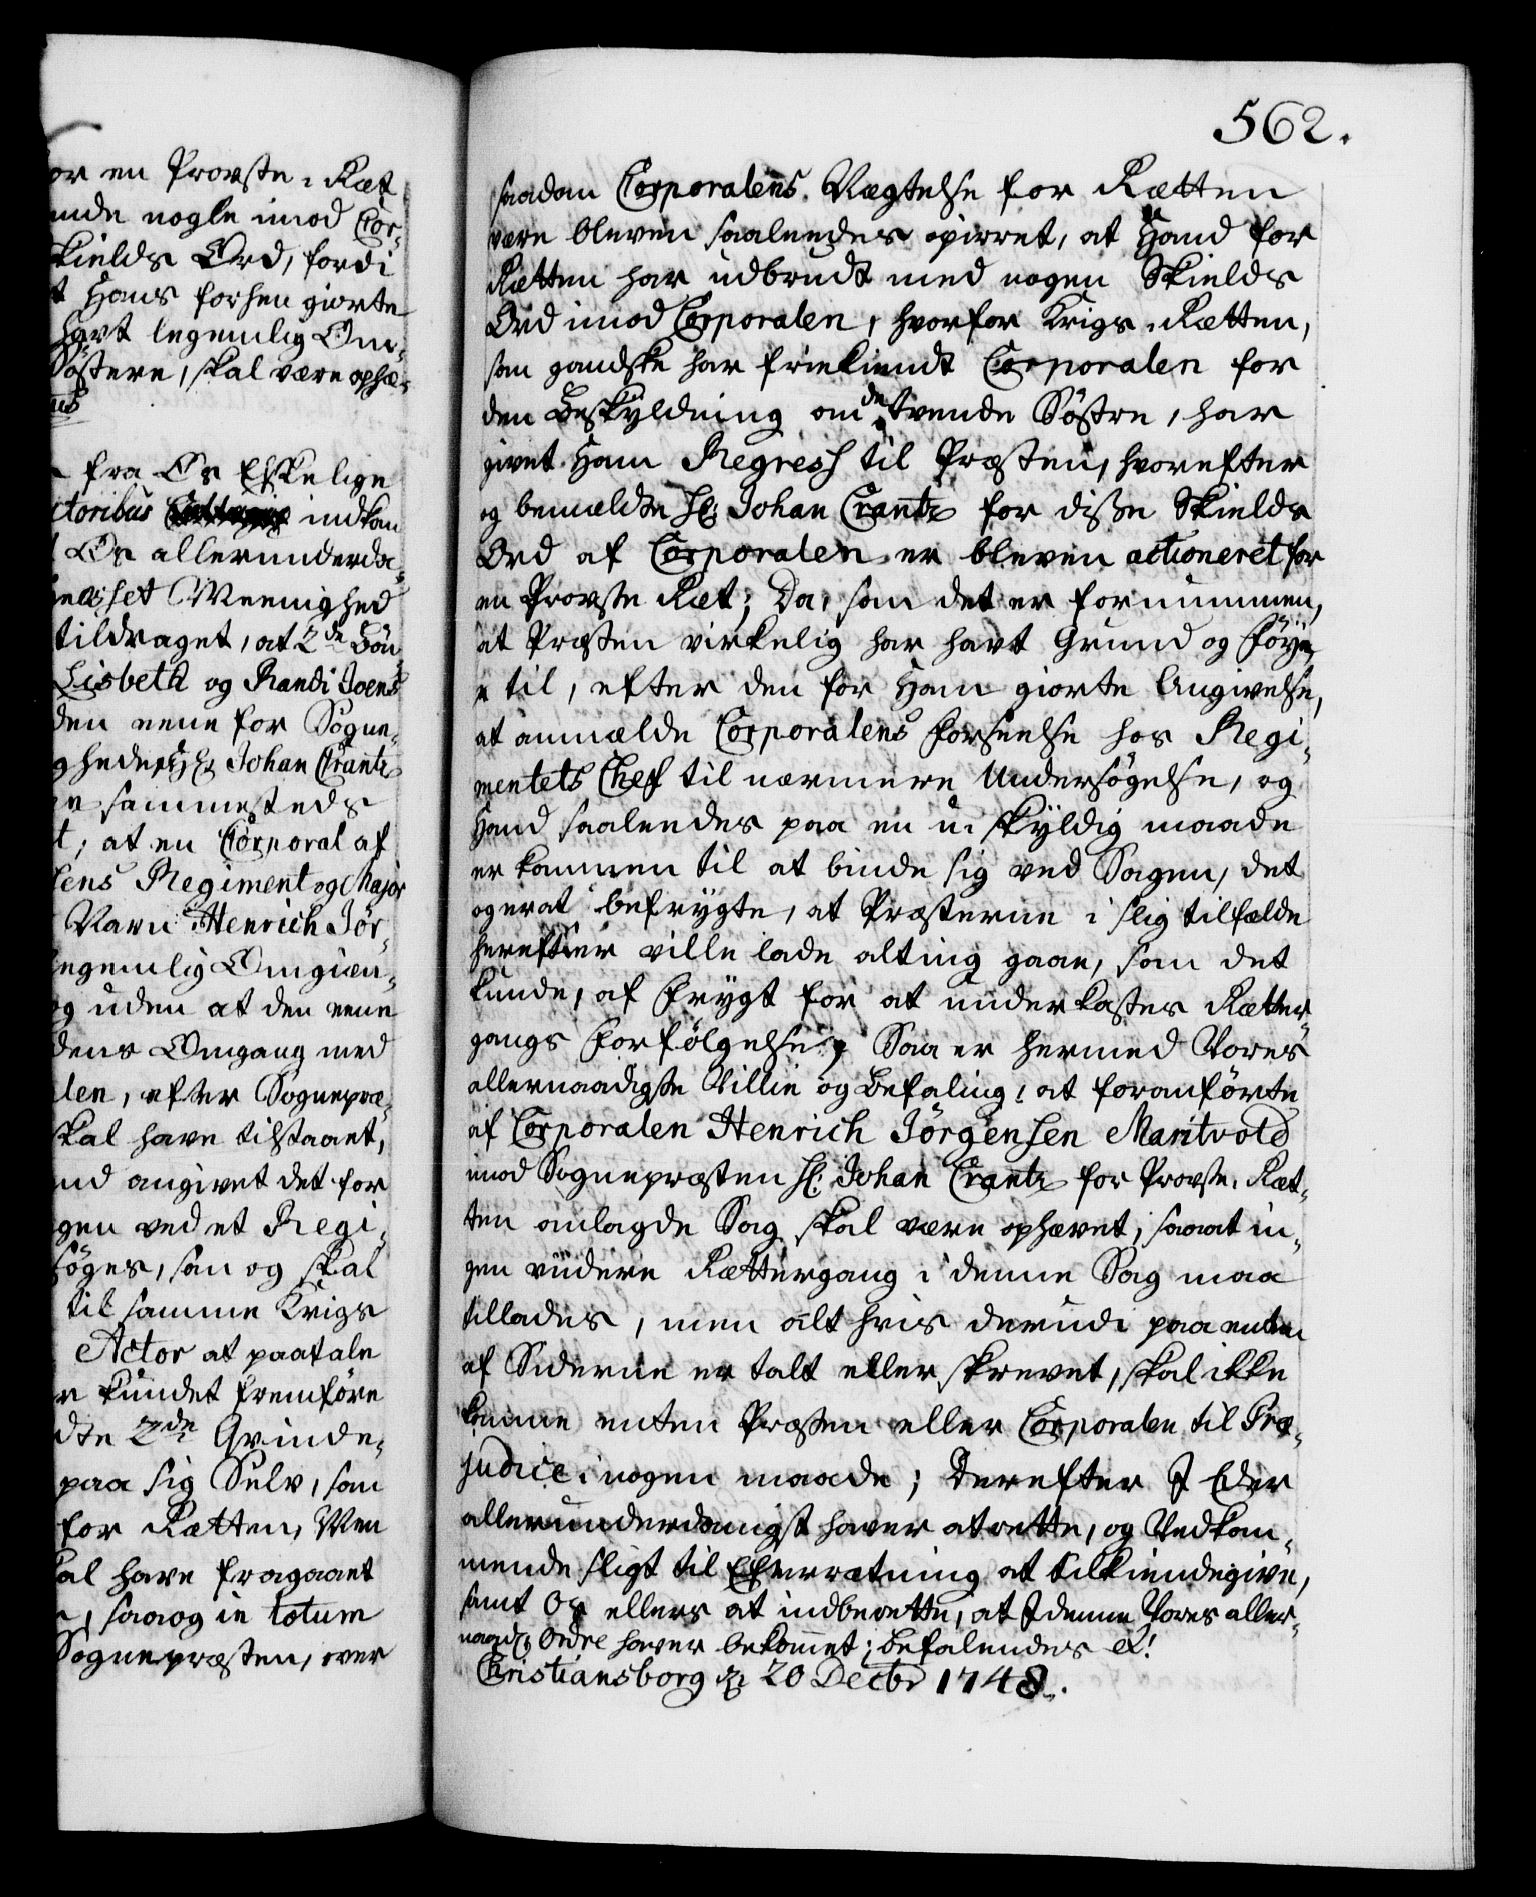 or en Provste-Ræt
ende nogle imod Cor-
kields Ord, fordi
t Hans forhen giorte
havt legemlig Om-
Söstere, skal være ophæ-
fra Os Elskelige
ctoribus indkom
Os allerunderda-
Meenighed
tildraget, at 2de Bön
Lisbeth og Randi Joens
den eene for Sogne-
ghedens Hr. Johan Crantz
sammesteds
t, at en Corporal af
lens Regiment og Major
Navn Henrich Jör-
legemlig Omgiæn-
og uden at den eene
dens Omgang med
den, efter Sognepræ-
skal have tilstaaet,
nd angivet det for
gen ved et Regi-
söges, som og skal
til samme Krigs
Actor at paatale
kundet fremföre
dte 2de Qvinde-
paa sig Selv, som
for Rætten, Men
kal have fragaaet
saa og in totum
Sognepræsten, over
562.
saadan Corporalens Nægtelse for Rætten
være bleven saaleedes opirret, at Hand for
Rætten har udbrudt med nogen Skields
Ord imod Corporalen, hvorfor Krigs-Rætten,
som gandske har friekiendt Corporalen for
den Beskyldning om de tvende Söstre, har
givet Ham Regress til Præsten, hvorefter
og bemældte Hr: Johan Crantz for disse Skields
Ord af Corporalen er bleven actioneret for
en Provste Ræt; Da, som det er fornummen,
at Præsten virkelig har havt Grund og Föÿe
til, efter den for Ham giorte Angivelse,
at anmælde Corporalens Forseelse hos Regi-
mentets Chef til nærmere Undersögelse, og
Hand saaleedes paa en u-skyldig maade
er kommen til at binde sig ved Sagen, det
og er at befrygte, at Præsterne i slig tilfælde
herefter ville lade alting gaae, som det
kunde, af Frygt for at underkastes Rætter-
gangs Forfölgelse; Saa er hermed Vores
allernaadigste Villie og Befaling, at foranförte
af Corporalen Henrich Jörgensen Maritvold
imod Sognepræsten Hr: Johan Crantz for Provste-Ræt-
ten anlagde Sag skal være ophævet, saa at in-
gen viidere Rættergang i denne Sag maa
tillades, men alt hvis derudi paa enten
af Siderne er talt eller skrevet, skal ikke
komme enten Præsten eller Corporalen til Præ-
judice i nogen maade; Derefter I Eder
allerunderdanigst haver at rette, og Vedkom-
mende sligt til Efterrætning at tilkiendegive,
samt Os ellers at indberette, at I denne Vores aller-
naads Ordre haver bekommet; Befalendes &!
Christiansborg d. 20 Decbr 1748.